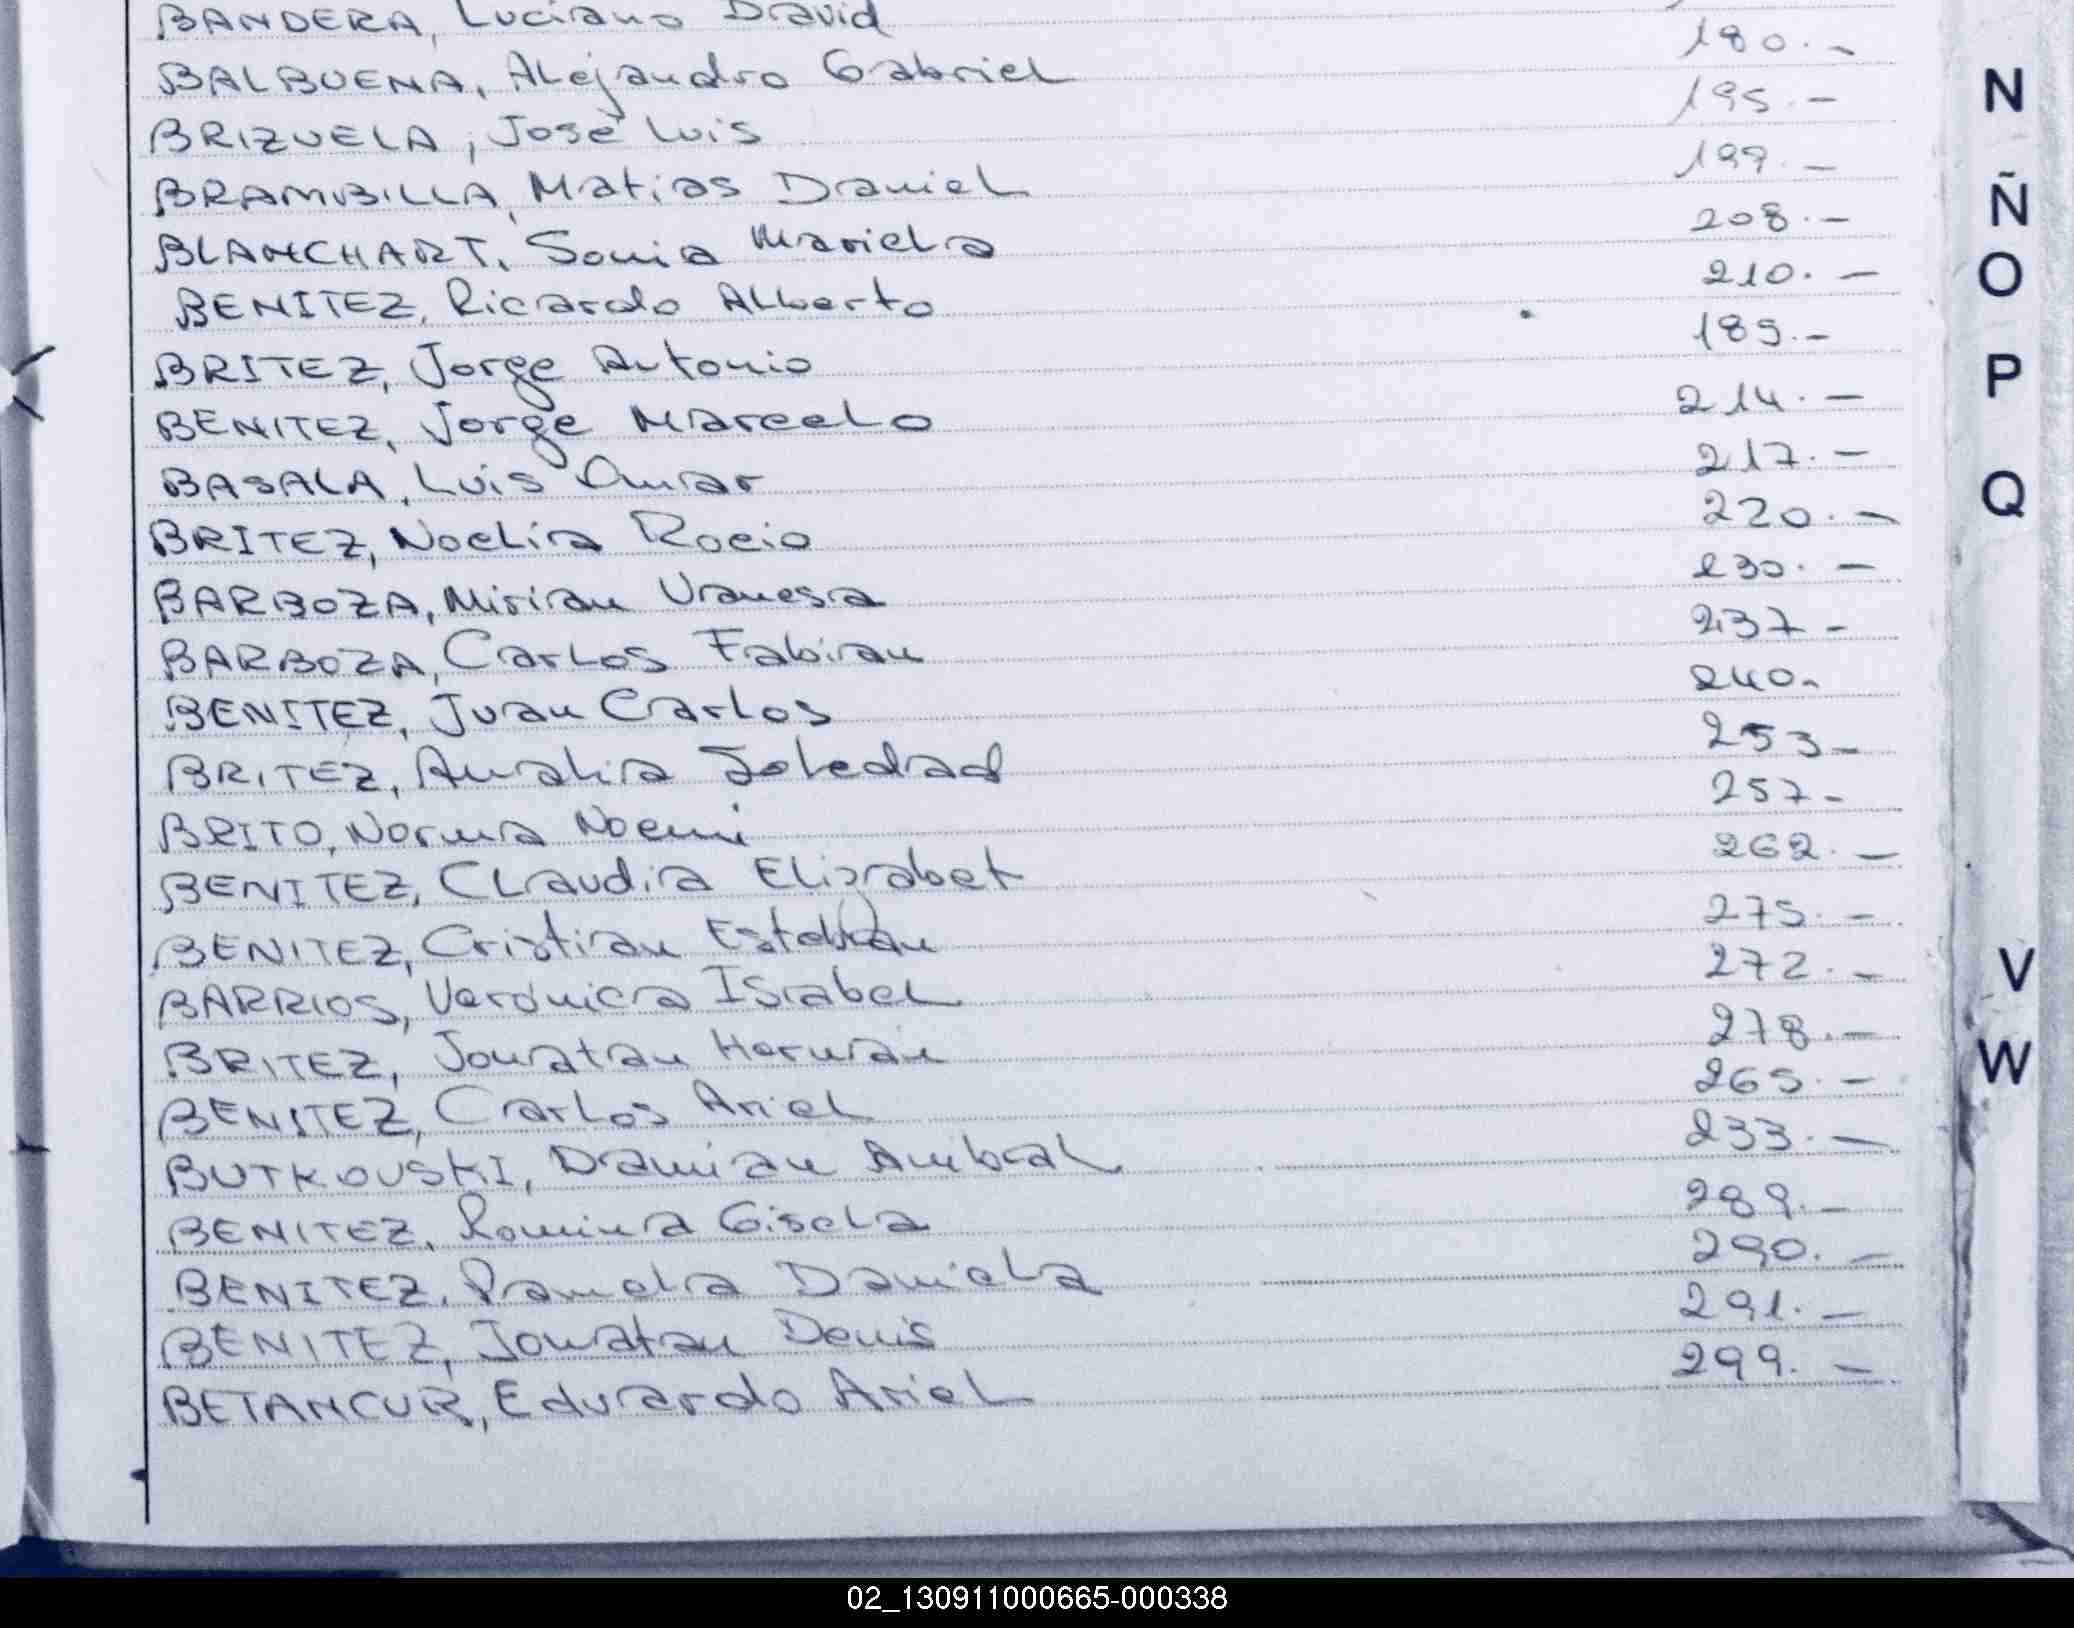 BANDERA, Luciano David
BALBUENA, Alejandro Gabriel 180.-
BRIZUELA, José Luis 195.-
BRAMBILLA, Matias Daniel 199.-
BLANCHART, Sonia Mariela 208.-
BENITEZ, Ricardo Alberto 210.-
BRITEZ, Jorge Antonio 189.-
BENITEZ, Jorge Marcelo 214.-
BASALA, Luis Omar 217.-
BRITEZ, Noelia Rocio 220.-
BARBOZA, Mirian Vanesa 230.-
BARBOZA, Carlos Fabian 237-
BENITEZ, Juan Carlos 240-
BRITEZ, Analia Soledad 253-
BRITO, Norma Noemi 257-
BENITEZ, Claudia Elizabet 262.-
BENITEZ, Cristian Esteban 275.-
BARRIOS, Verónica Isabel 272.-
BRITEZ, Jonatan Hernan 278.-
BENITEZ, Carlos Ariel 265.-
BUTKOUSKI, Damian Anibal 233.-
BENITEZ, Romina Gisela 289.-
BENITEZ, Pamela Daniela 290.-
BENITEZ, Jonatan Denis 291.-
BETANCUR, Eduardo Ariel 299.-
N
Ñ
O
P
Q
V
W
02_130911000665-000338